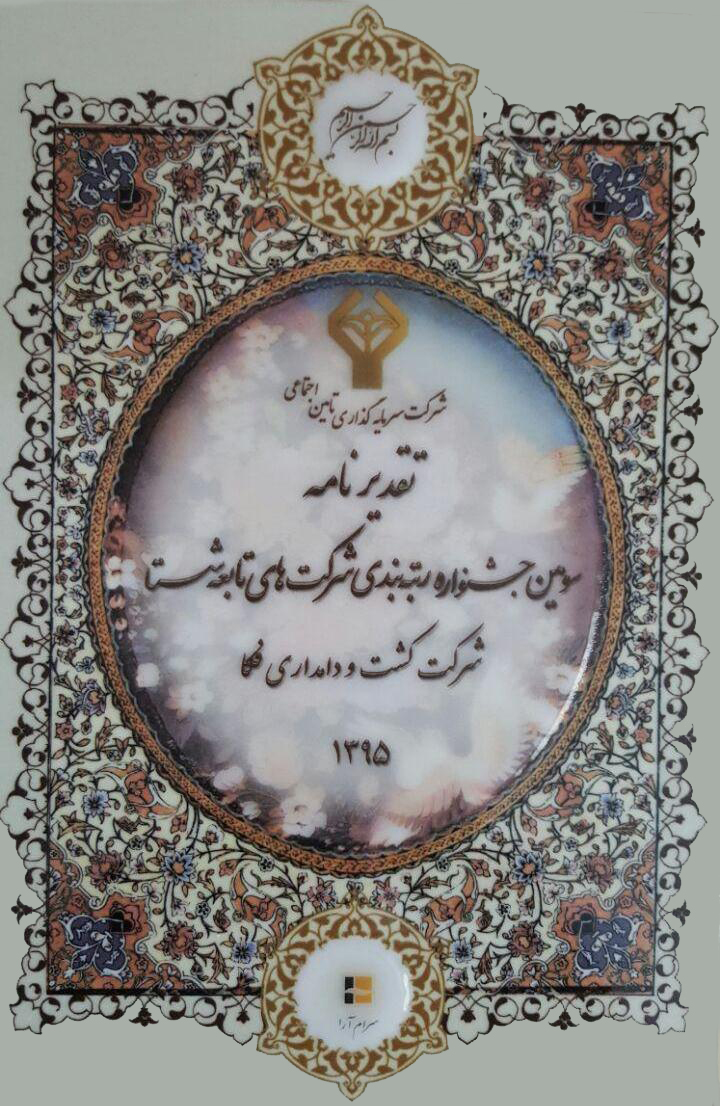 بسم الله الرحمن الرحیم
شرکت سرمایه گذاری تامین اجتماعی
تقدیر نامه
سومین جشنواره رتبه بندی شرکت های تابعه شستا
شرکت کشت و دامداری فکا
۱۳۹۵
سرام آرا